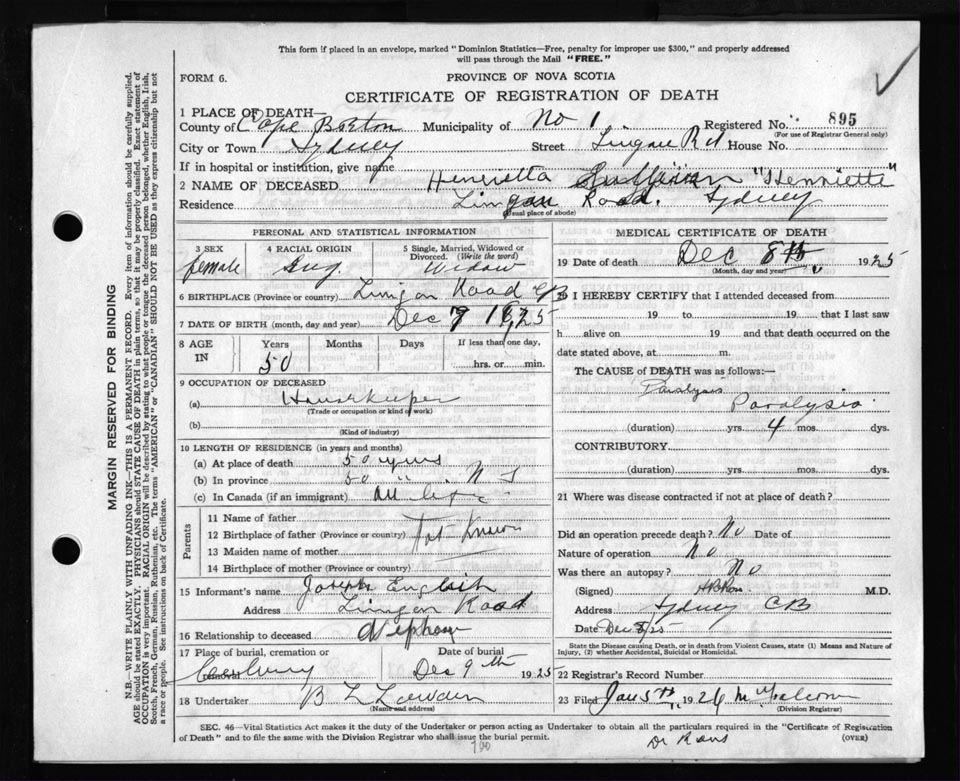 This form if placed in an envelope, marked "Dominion Statistics—Free, penalty for improper use $300," and properly addressed
will pass through the Mail "FREE."
FORM 6.
PROVINCE OF NOVA SCOTIA
CERTIFICATE OF REGISTRATION OF DEATH
1 PLACE OF DEATH—
County of Cape Breton Municipality of No 1 Registered No. 895
(For use of Registrar General only)
City or Town Sydney Street Lingan Rd House No.
If in hospital or institution, give name
2 NAME OF DECEASED Henrietta Sullivan "Henriette"
Residence Lingan Road. Sydney
(Usual place of abode)
PERSONAL AND STATISTICAL INFORMATION
3 SEX 4 RACIAL ORIGIN 5 Single, Married, Widowed or Divorced. (Write the word)
female Eng. Widow
6 BIRTHPLACE (Province or country) Lingan Road CB
7 DATE OF BIRTH (month, day and year) Dec 9
8 AGE IN Years Months Days If less than one day,
50 hrs. or min.
9 OCCUPATION OF DECEASED
(a) Housekeeper
(Trade or occupation or kind of work)
(b)
(Kind of industry)
10 LENGTH OF RESIDENCE (in years and months)
(a) At place of death 50 years
(b) In province 50 " N S
(c) In Canada (if an immigrant) All life
Parents
11 Name of father
12 Birthplace of father (Province or country) Not Known
13 Maiden name of mother
14 Birthplace of mother (Province or country)
15 Informant's name Joseph English
Address Lingan Road
16 Relationship to deceased Nephew
17 Place of burial, cremation or removal Date of burial
Dec 9th 1925
18 Undertaker B L
(Name and address)
MEDICAL CERTIFICATE OF DEATH
19 Date of death Dec 8th 1925
(Month, day and year)
20 I HEREBY CERTIFY that I attended deceased from
19 to 19 that I last saw
h alive on 19 and that death occurred on the
date stated above, at m.
The CAUSE of DEATH was as follows:—
Paralysis
Paralysis
(duration) yrs. 4 mos. dys.
CONTRIBUTORY.
(duration) yrs. mos. dys.
21 Where was disease contracted if not at place of death?
Did an operation precede death? No Date of
Nature of operation No
Was there an autopsy? No
(Signed) M.D.
Address Sydney CB
Date Dec 8/25
State the Disease causing Death, or in death from Violent Causes, state (1) Means and Nature of Injury, (2) whether Accidental, Suicidal or Homicidal.
22 Registrar's Record Number
23 Filed Jan 5th 1926
(Division Registrar)
SEC. 46—Vital Statistics Act makes it the duty of the Undertaker or person acting as Undertaker to obtain all the particulars required in the "Certificate of Registration
of Death" and to file the same with the Division Registrar who shall issue the burial permit.
(OVER)
Dr Ross
MARGIN RESERVED FOR BINDING
N.B.—WRITE PLAINLY WITH UNFADING INK—THIS IS A PERMANENT RECORD. Every item of information should be carefully supplied.
AGE should be stated EXACTLY. PHYSICIANS should STATE CAUSE OF DEATH in plain terms, so that it may be properly classified. Exact statement of
OCCUPATION is very important. RACIAL ORIGIN will be described by stating to what people or tongue the deceased person belonged, whether English, Irish,
Scotch, French, German, Russian, Ruthenian, etc. The terms "AMERICAN" or "CANADIAN" SHOULD NOT BE USED as they express citizenship but not
a race or people. See instructions on back of Certificate.